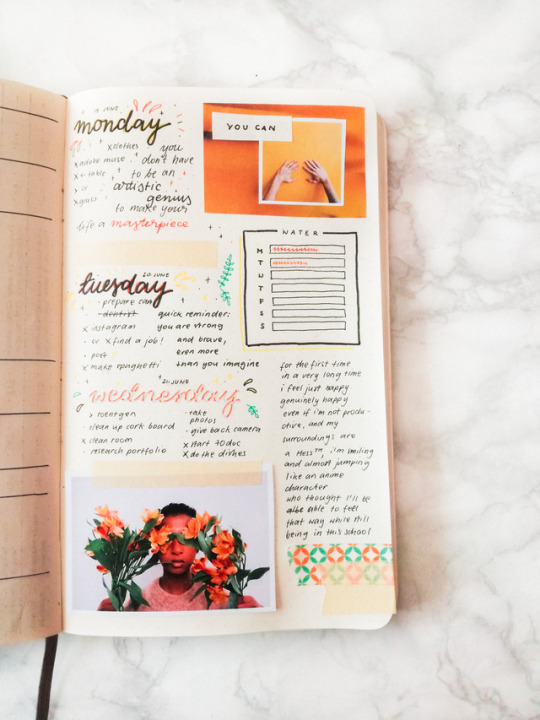 monday
x clothes
x adobe muse
x table
you
don't have
to be an
artistic
genius
to make your
life a masterpiece
YOU CAN
WATER
M
T
W
T
F
S
S
tuesday
20 JUNE
- prepare can
- dentist
x instagram
- cv x find a job!
x make spaghetti
quick reminder:
you are strong
and brave,
even more
than you imagine
21 JUNE
wednesday
> roentgen
- clean up cork board
x clean room
- research portfolio
- take
photos
- give back camera
x start 40duc
x do the dishes
for the first time
in a very long time
i feel just happy
genuinely happy
even if i'm not produ-
ctive, and my
surroundings are
a MESS™, i'm smiling
and almost jumping
like an anime
character
who thought i'll be
able to feel
that way while still
being in this school